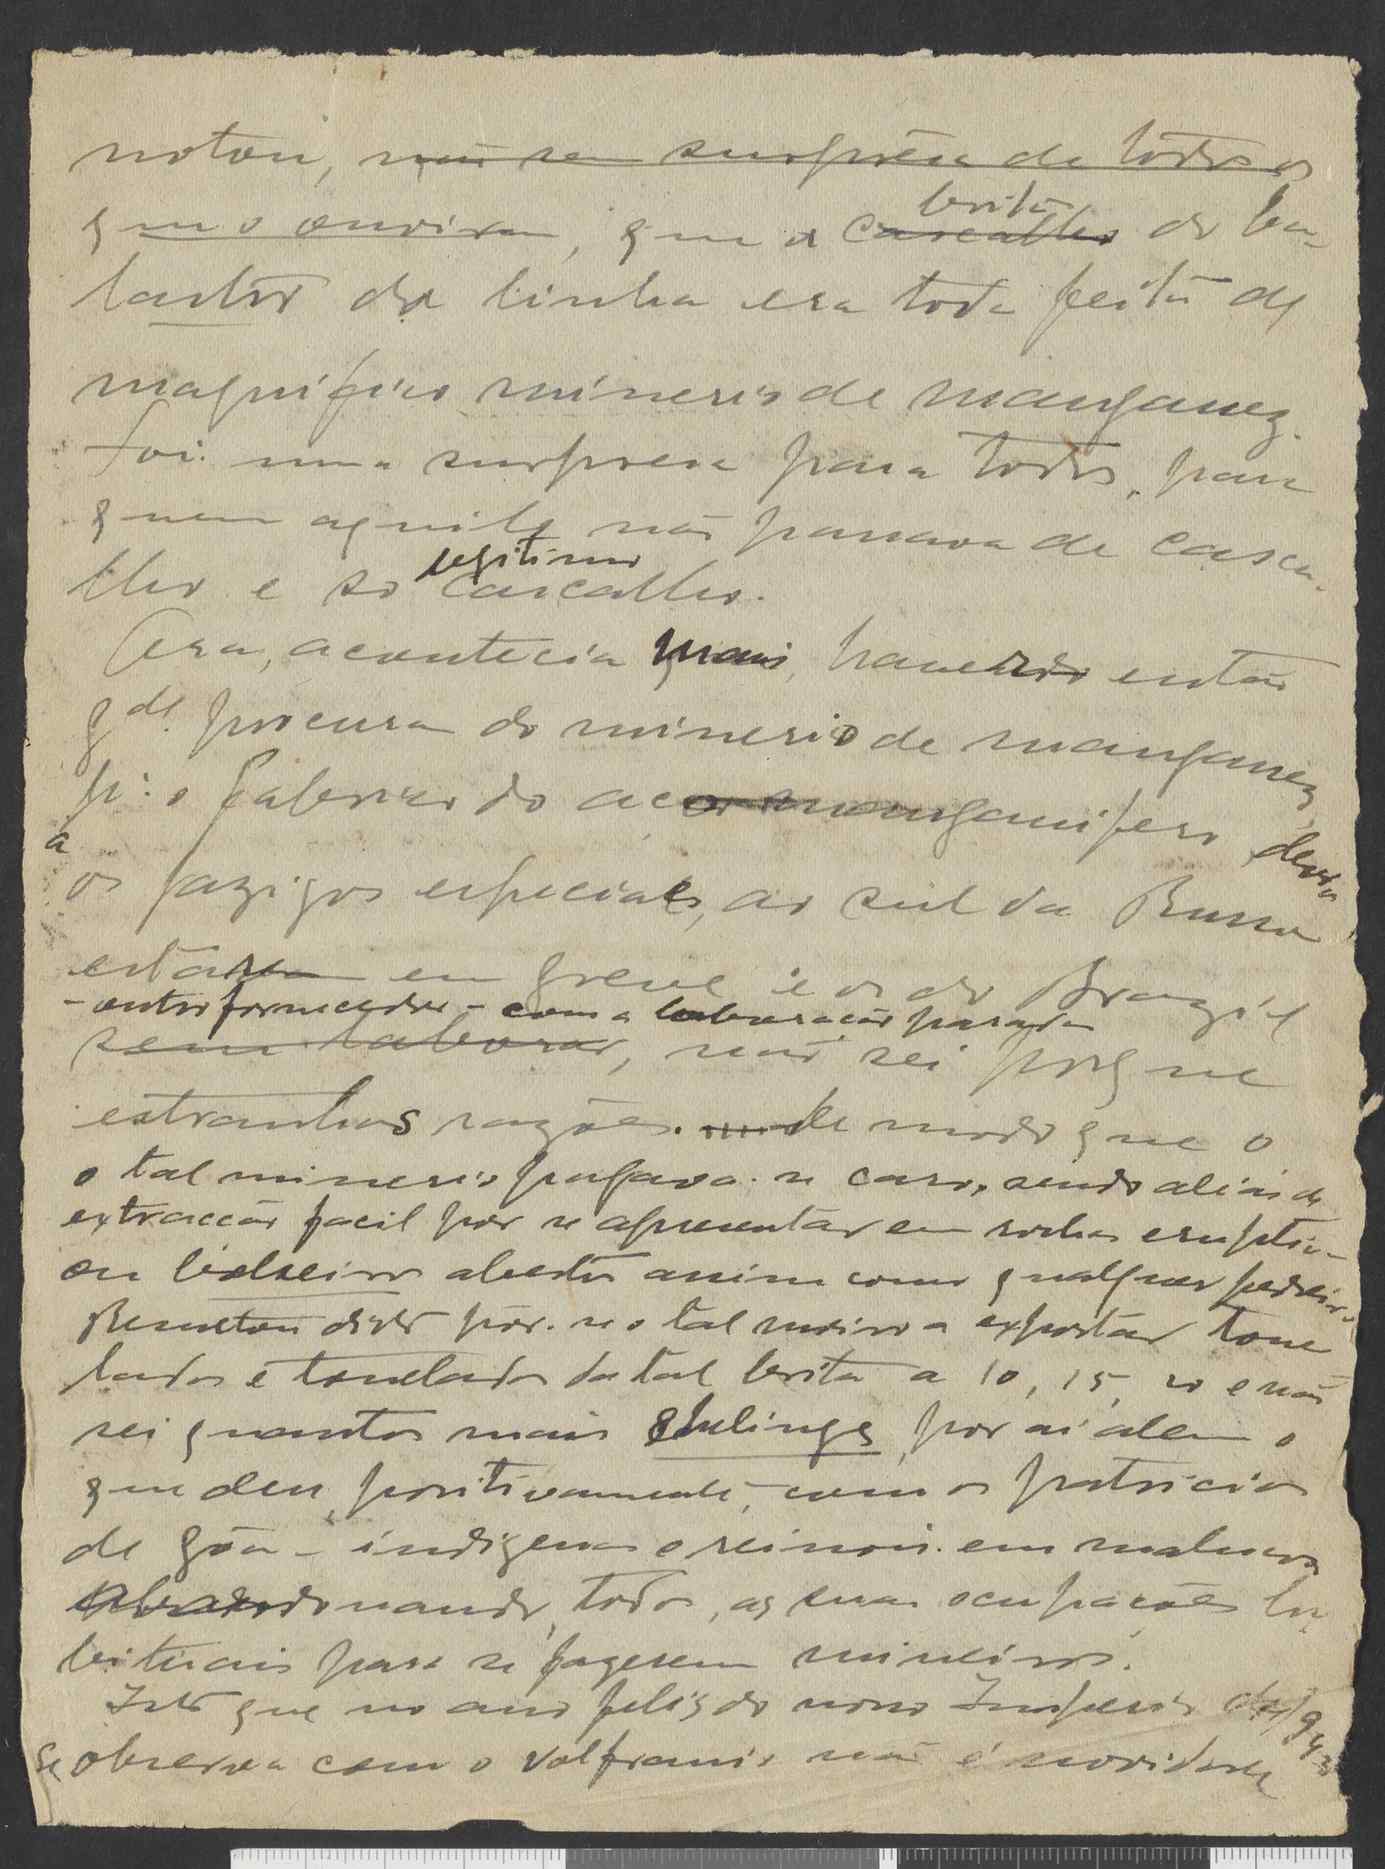 notou, não sem surprêsa de todos os
que o ouviram, que a cascalho brita do ba-
lastro da linha era toda feita de
magnifico minerio de manganez.
Foi uma surpresa para todos, para
quem aquilo não passava de casca-
lho e só legitimo cascalho.
Ora, acontecia mais, havendo então
gde. procura do minerio de manganez
p.ª o fabrico do aço manganifero, devido
a
os jazigos especiaes, ao sul da Russia
estarem em greve e os do Brazil
- outro fornecedor - com a laboração parada
sem laborar, não sei porque
estranhas razões. de modo que o
o tal minerio pagava-se caro, sendo aliás de
extracção facil por se apresentar em rochas erupti-
ou aberto assim como qualquer pedreira.
Resultou disto pôr-se o tal mineiro a exportar tone
ladas e toneladas da tal brita a 10, 15, 20 e não
sei quantos mais shelings, por aí alem o
que deu, positivamente, com os patricios
de Gôa - indigenas e reinois - em malucos
abandonando, todos, as suas ocupações ha
bituais para se fazerem mineiros.
Isto que no ano feliz do nosso Imperio de 1942
se observa com o volframio não é novidade